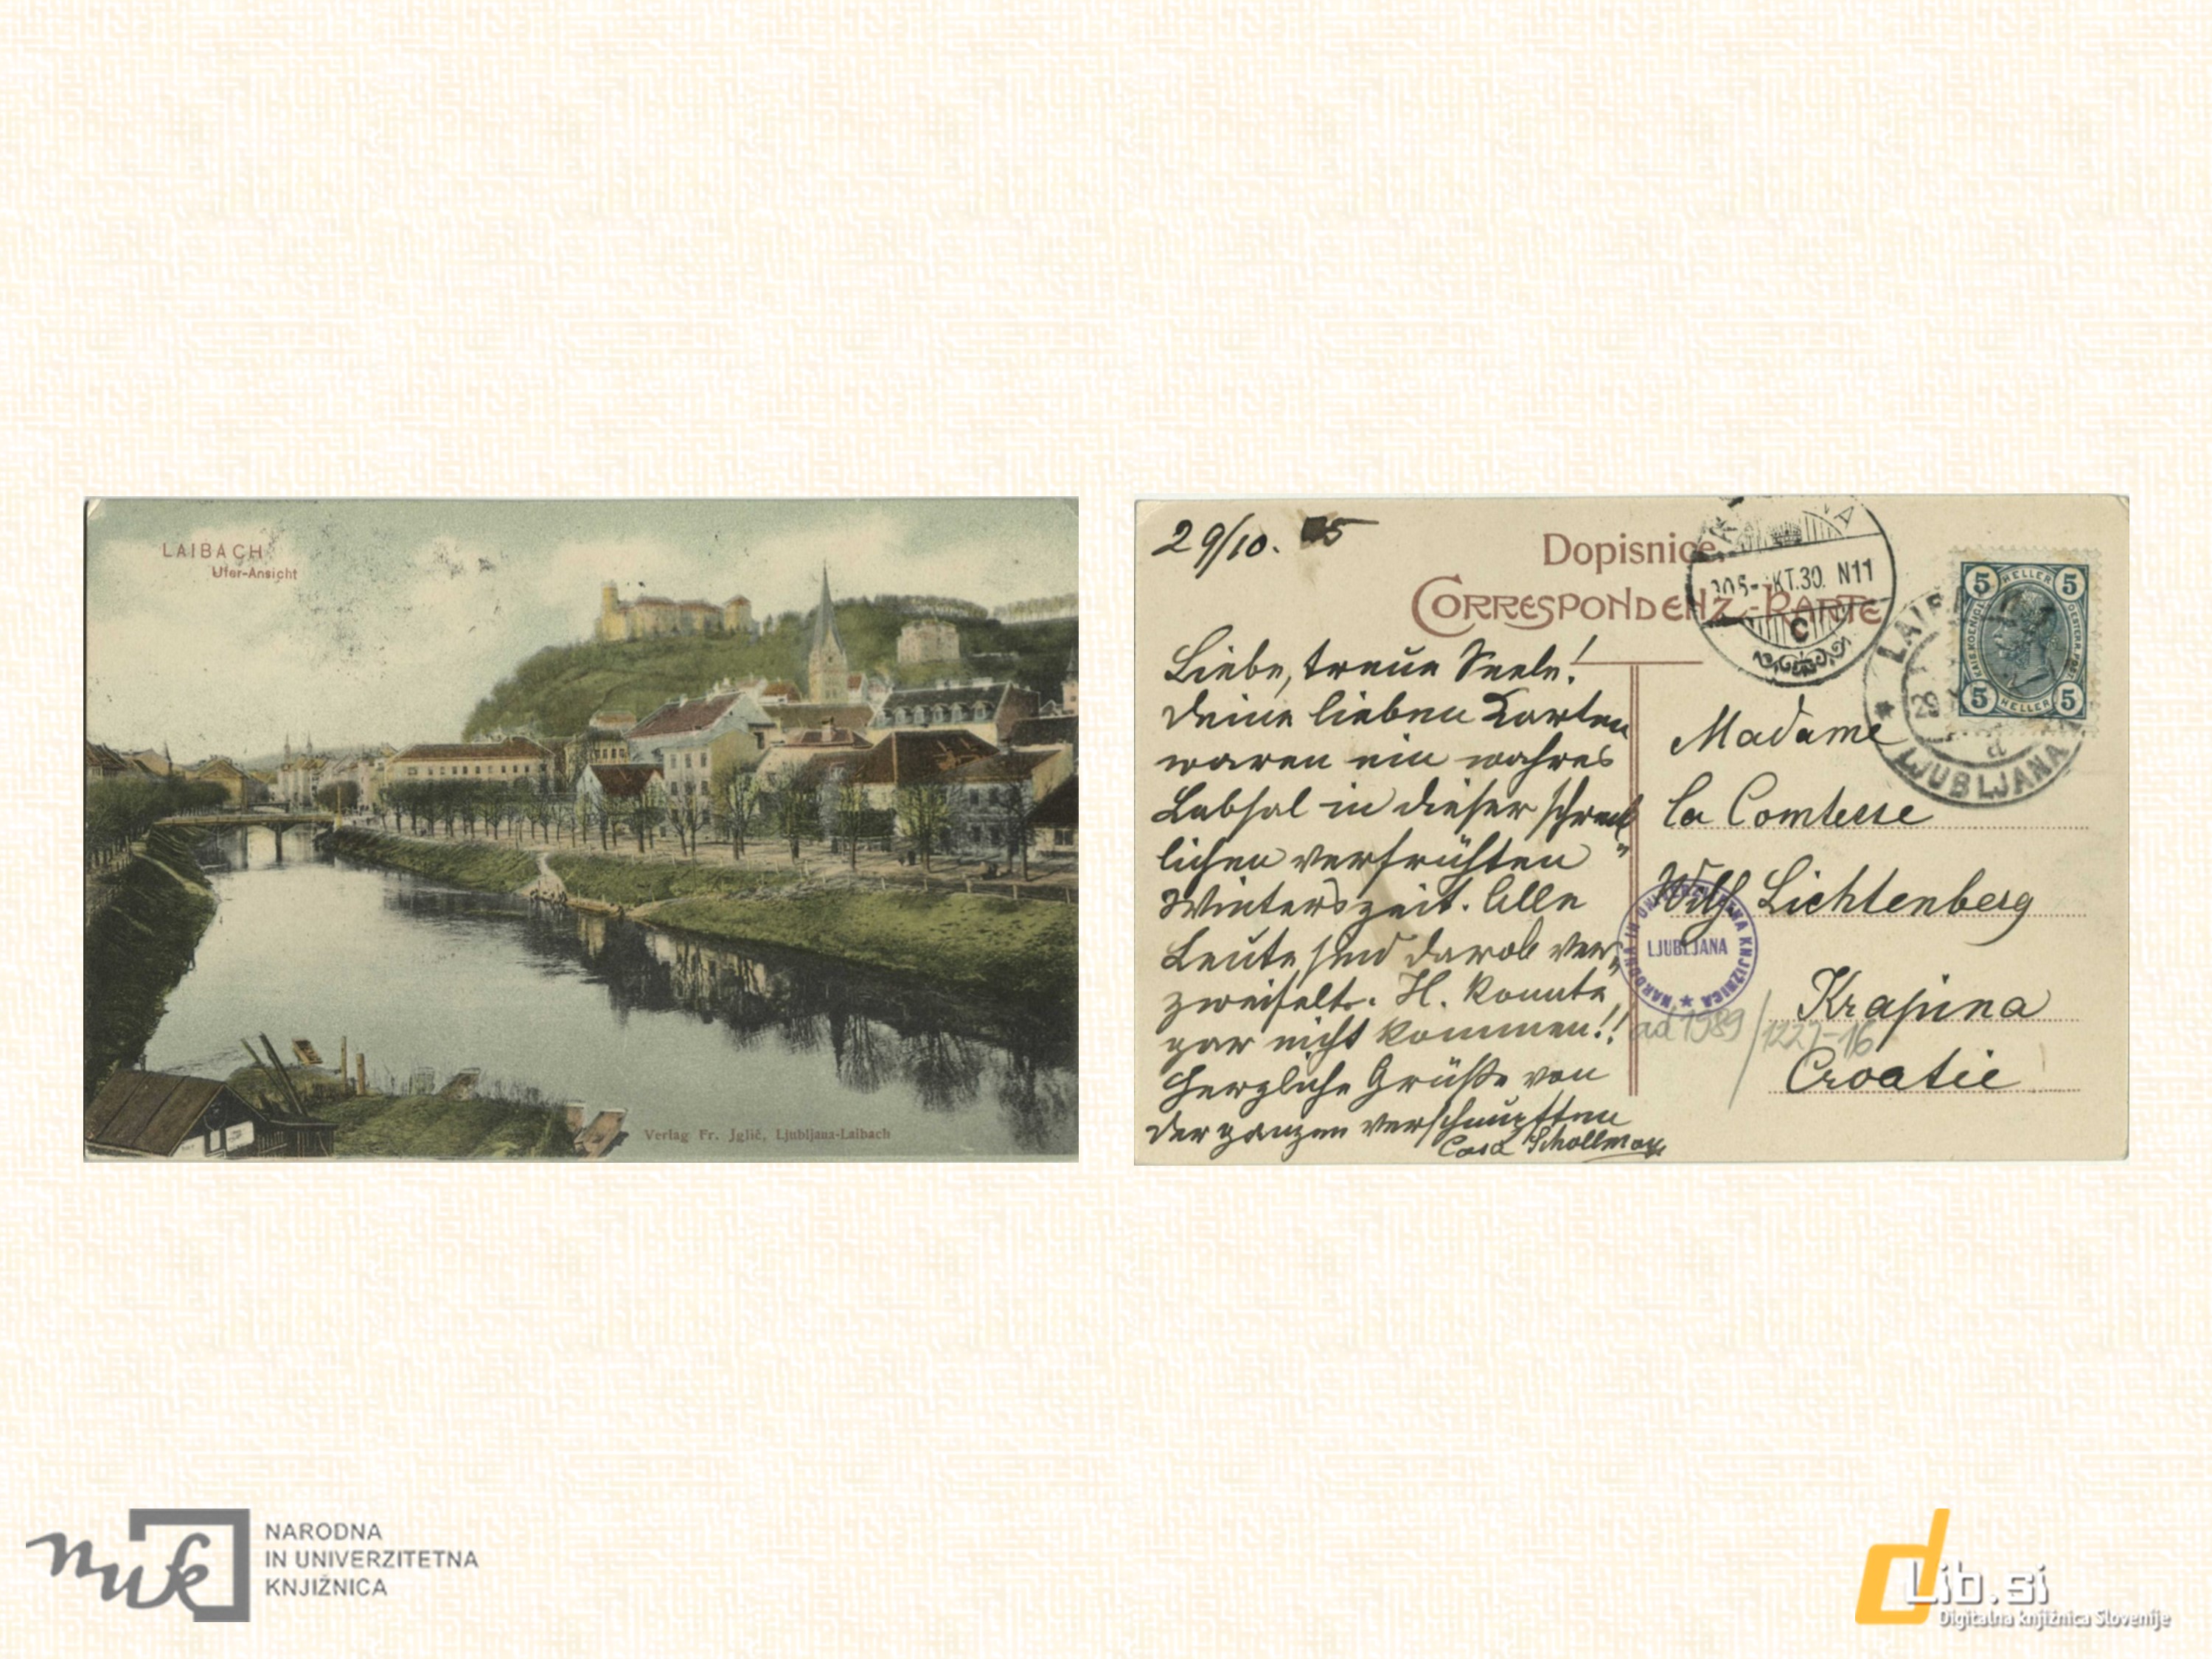 LAIBACH
Ufer-Ansicht
Verlag Fr. Jglič, Ljubljana-Laibach
29/10. 05
Dopisnice
CORRESPONDENZ-KARTE
Liebe, treue Seele!
Deine lieben Karten
waren ein wahres
Labsal in dieser schreck
lichen verfrühten
Winterszeit. Alle
Leute sind darob ver„
zweifelt. H. konnte
gar nicht kommen!!
Herzliche Grüße von
der ganzen verschnupften
Casa Schollmay
KT.30. N11
C
LJUBLJANA
29
5 HELLER 5
5 HELLER 5
Madame
la Comtesse
Wilf Lichtenberg
Krapina
Croatie
NARODNA IN UNIVERZITETNA KNJIŽNICA
LJUBLJANA
ad 1989/1227-16
nuk
NARODNA
IN UNIVERZITETNA
KNJIŽNICA
dLib.si
Digitalna knjižnica Slovenije